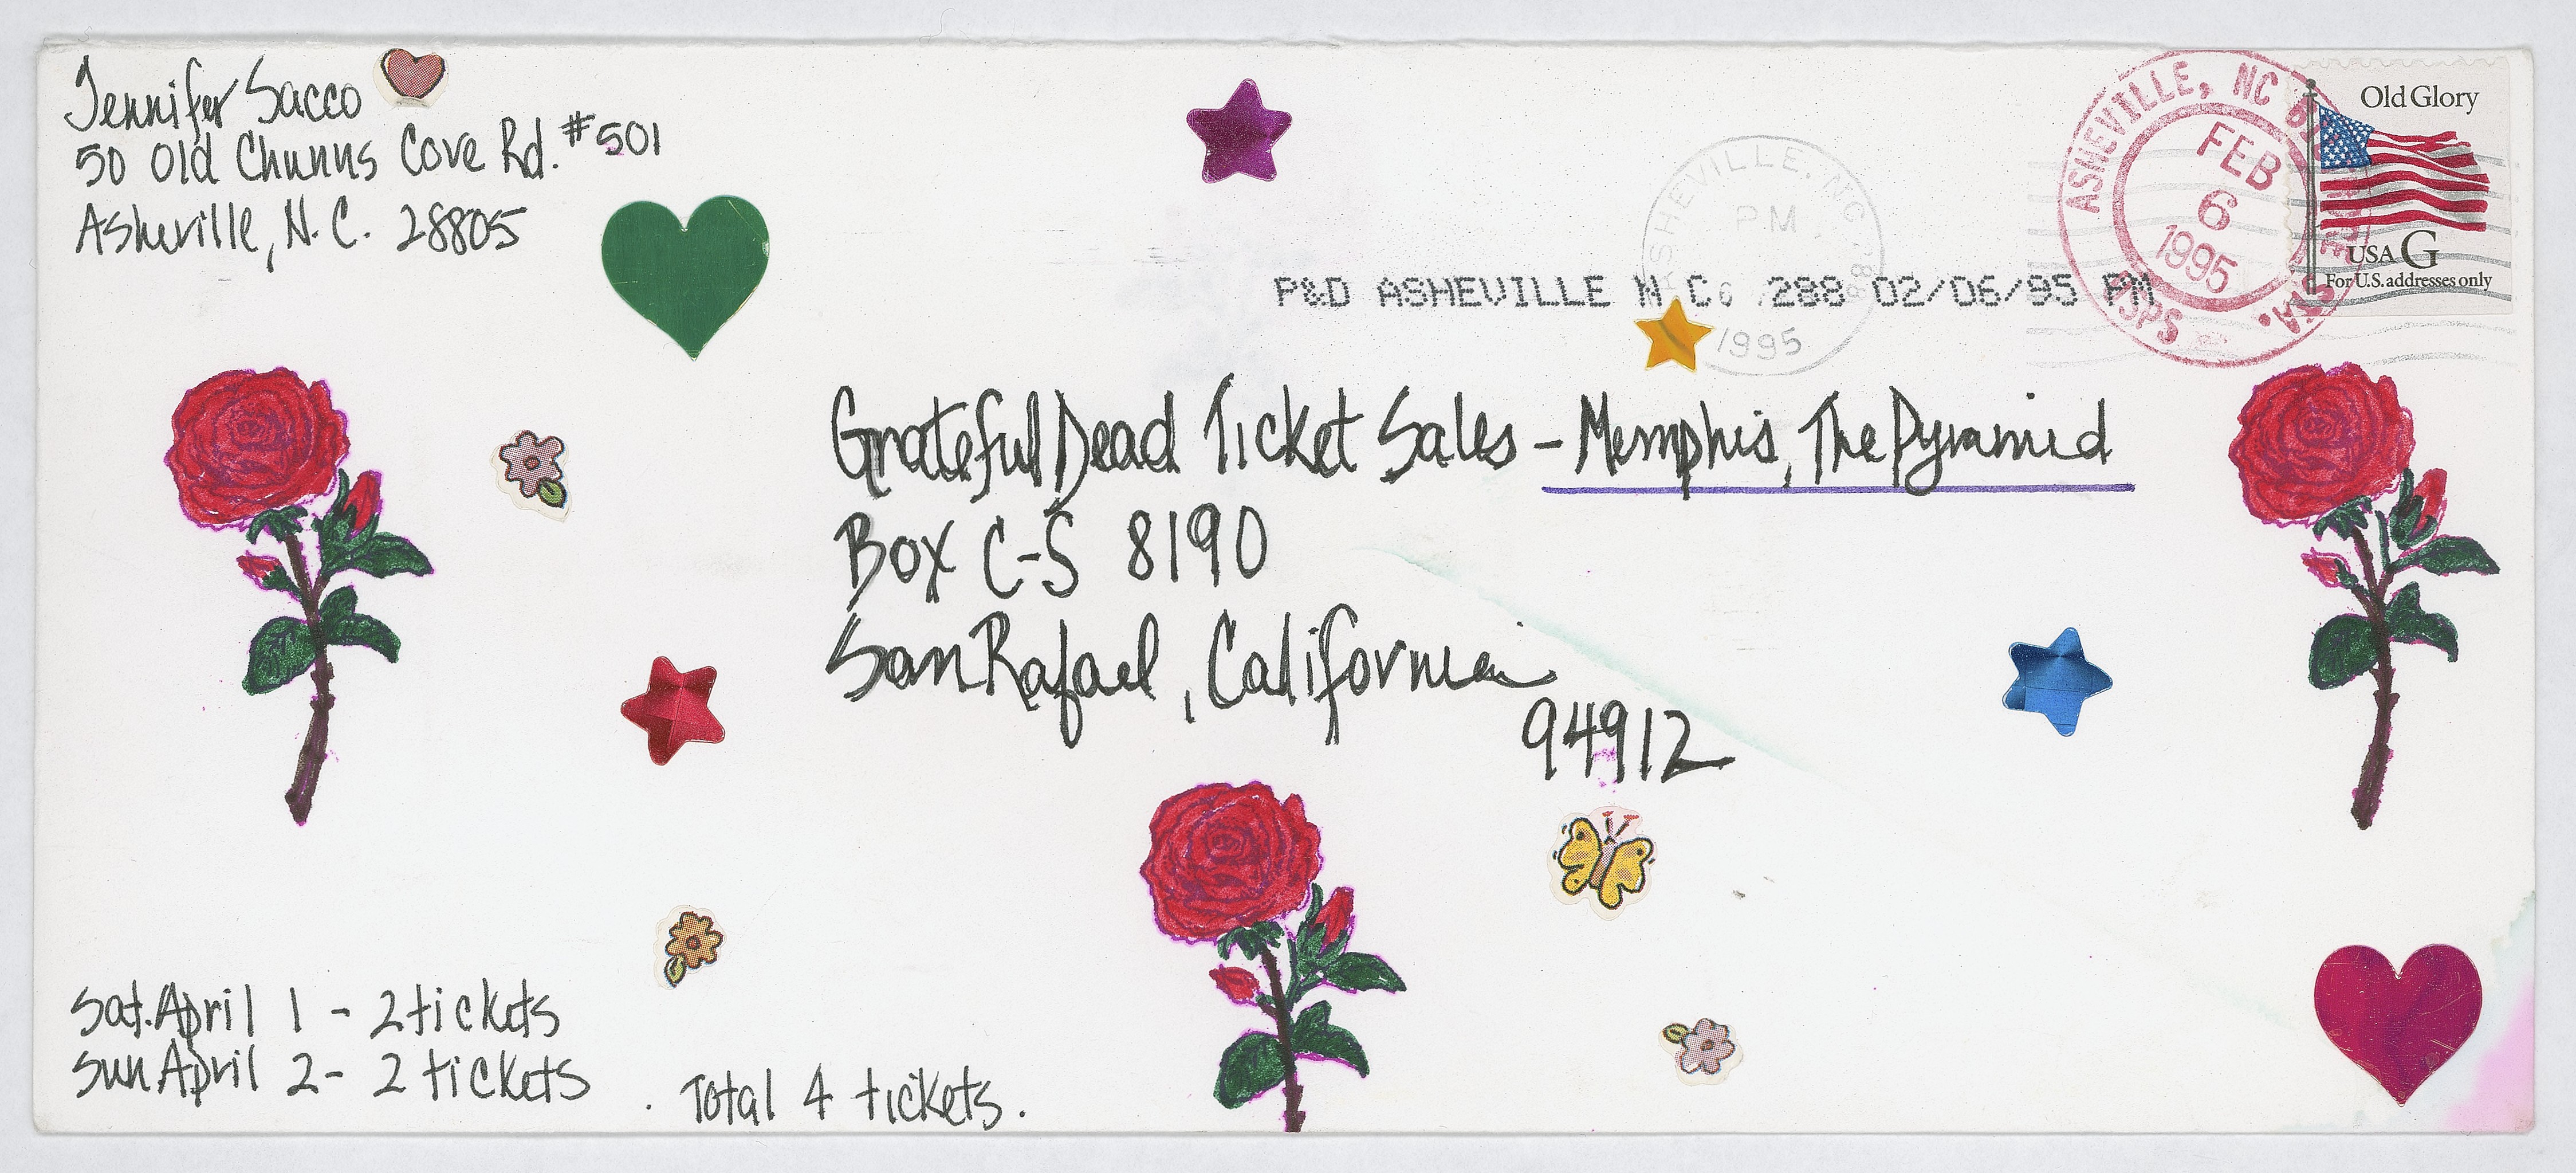 Jennifer Sacco
50 Old Chunns Cove Rd. #501
Asheville, N.C. 28805
ASHEVILLE, NC
PM
6
1995
P&D ASHEVILLE N C 288 02/06/95 PM
ASHEVILLE, NC
FEB
6
1995
USPS
STA.
Old Glory
USA G
For U.S. addresses only
Grateful Dead Ticket Sales - Memphis, The Pyramid
Box C-S 8190
San Rafael, California
94912
Sat. April 1 - 2 tickets
Sun April 2 - 2 tickets
. Total 4 tickets.